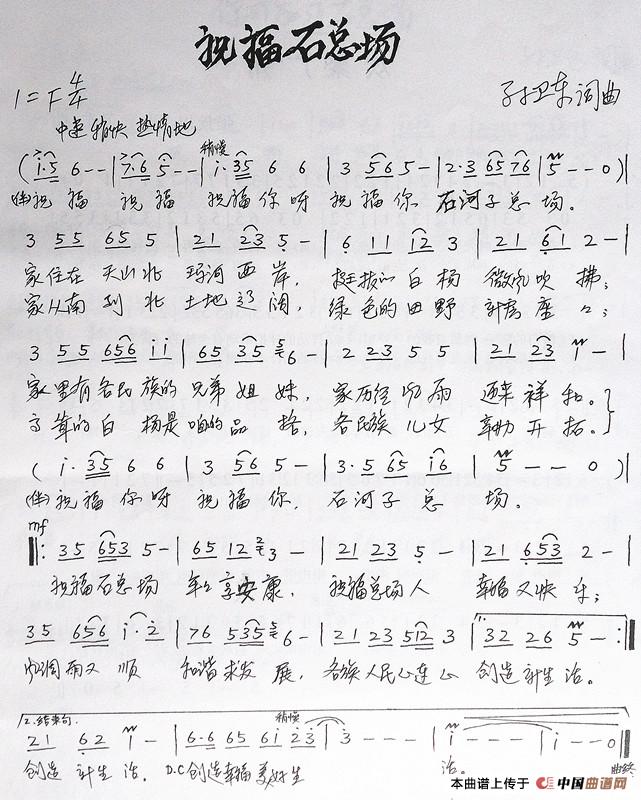 祝福石总场
1=F 4/4
孙卫东 词曲
中速稍快 热情地
稍慢
(i·5 6-- | 7·6 5-- | i·35 6 6 | 3 565 5- | 2·3 65 76 | 5--0)
(伴)祝福 祝福 祝福你呀 祝福你 石河子总场。
3 55 65 5 | 21 23 5- | 6 11 12 3 | 21 61 2-
家住在天山北玛河西岸, 挺拔的白杨微风吹拂;
家从南到北土地辽阔, 绿色的田野
3 55 656 ii | 65 35 6- | 2 23 5 5 | 21 23 1-
家里有各民族的兄弟姐妹, 家历经风雨迎来祥和。
高耸的白杨是咱的品格, 各民族儿女 开拓。
(i·35 6 6 | 3 56 5- | 3·5 65 i6 | 5--0)
(伴)祝福你呀 祝福你, 石河子总场。
mf
35 653 5- | 65 12 3- | 21 23 5- | 21 653 2-
祝福石总场 年年享安康, 祝福总场人 幸福又快乐;
1.
35 656 i·2 | 76 535 6- | 21 23 512 3 | 32 26 5-
风调雨又顺 和谐求发展, 各族人民心连心 创造新生活。
2.结束句
稍慢
21 62 1- | 6·6 65 6i 23 | 3--- | i--- | i--0
创造新生活. D.C 创造幸福美好生活。
曲终
本曲谱上传于 中国曲谱网